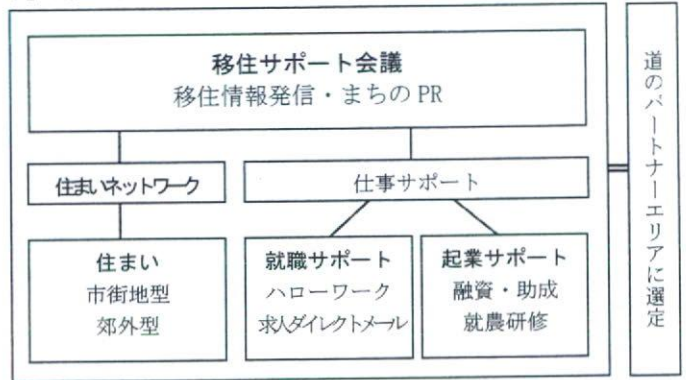 移住サポート会議
移住情報発信・まちの PR
住まいネットワーク
仕事サポート
住まい
市街地型
郊外型
就職サポート
ハローワーク
求人ダイレクトメール
起業サポート
融資・助成
就農研修
道のパートナーエリアに選定